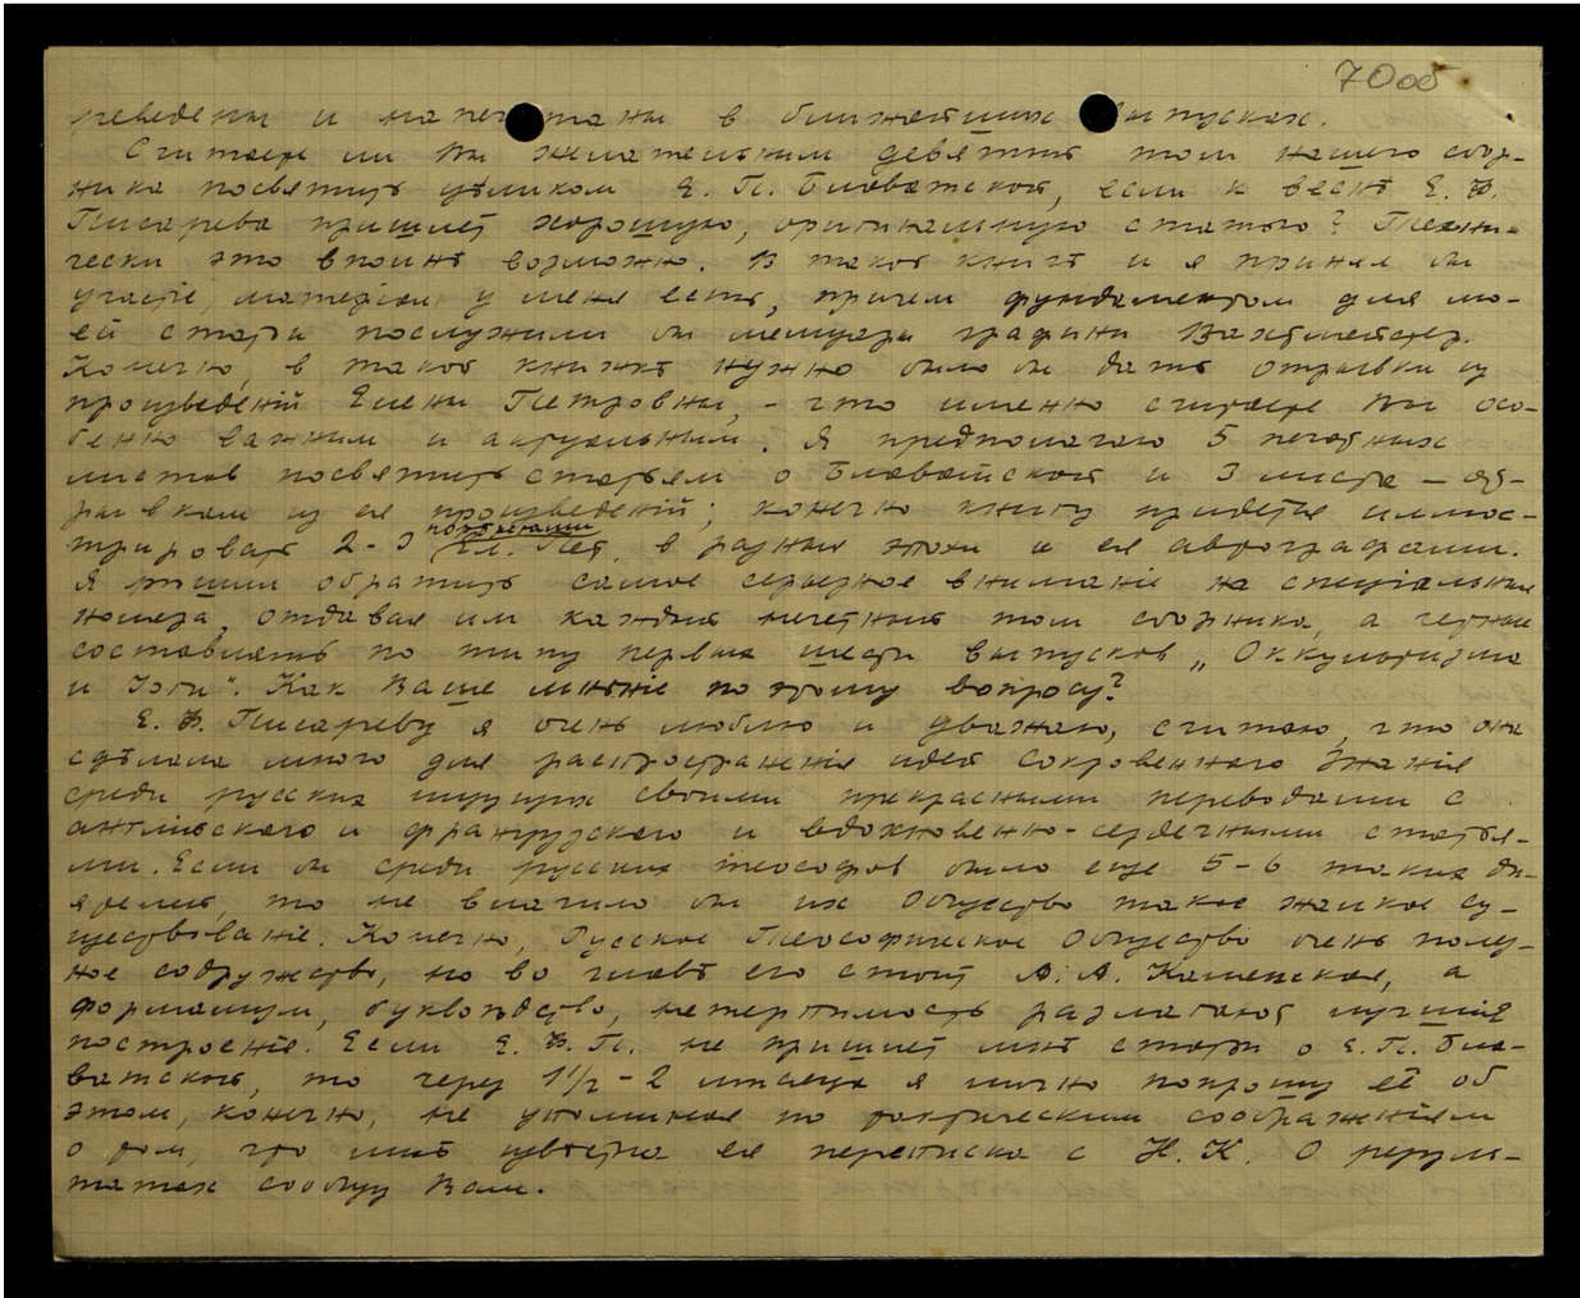 70об
реведены и напечатаны в ближайших выпусках.
Считаете ли Вы желательным девятый том нашего сбор-
ника посвятить цѣликом Е. П. Блаватской, если к веснѣ Е. Ф.
Писарева пришлет хорошую, оригинальную статью? Техни-
чески это вполнѣ возможно. В такой книгѣ и я принял бы
участіе, матеріал у меня есть, причем фундаментом для мо-
ей статьи послужили бы мемуары графини Вахтмейстер.
Конечно, в такой книжкѣ нужно было бы дать отрывки из
произведеній Елены Петровны, - что именно считаете Вы осо-
бенно важным и актуальным. Я предполагаю 5 печатных
листов посвятить статьям о Блаватской и 3 листа – от-
рывкам из ея произведеній; конечно книгу придется иллюс-
портретами
трировать 2-3 Ел. Пет. в разныя эпохи и ея автографами.
Я рѣшил обратить самое серьезное вниманіе на спеціальные
номера, отдавая им каждый нечетный том сборника, а четные
составлять по типу первых шести выпусков „Оккультизма
и Йоги“. Как Ваше мнѣніе по этому вопросу?
Е. Ф. Писареву я очень люблю и уважаю, считаю, что она
сдѣлала много для распространенія идей Сокровенного Знанія
среди русских ищущих своими прекрасными переводами с
англійского и французского и вдохновенно-сердечными статья-
ми. Если бы среди русских теософов было еще 5-6 таких дѣ-
ятелей, то не влачило бы их Общество такое жалкое су-
ществованіе. Конечно, Русское Теософическое Общество очень полез-
ное содружество, но во главѣ его стоит А. А. Каменская, а
формализм, буквоѣдство, нетерпимость разлагают лучшія
построенія. Если Е. Ф. П. не пришлет мнѣ статьи о Е. П. Бла-
ватской, то через 1 1/2 - 2 мѣсяца я лично попрошу её об
этом, конечно, не упоминая по тактическим соображеніям
о том, что мнѣ извѣстна ея переписка с Н. К. О резуль-
татах сообщу Вам.